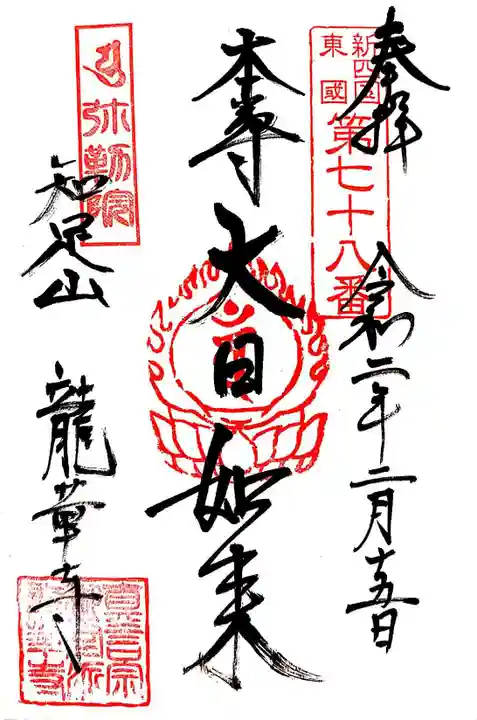 奉拝
新四国
東國
第七十八番
令和二年二月十五日
本尊
大日如来
弥勒院
知足山
龍華寺